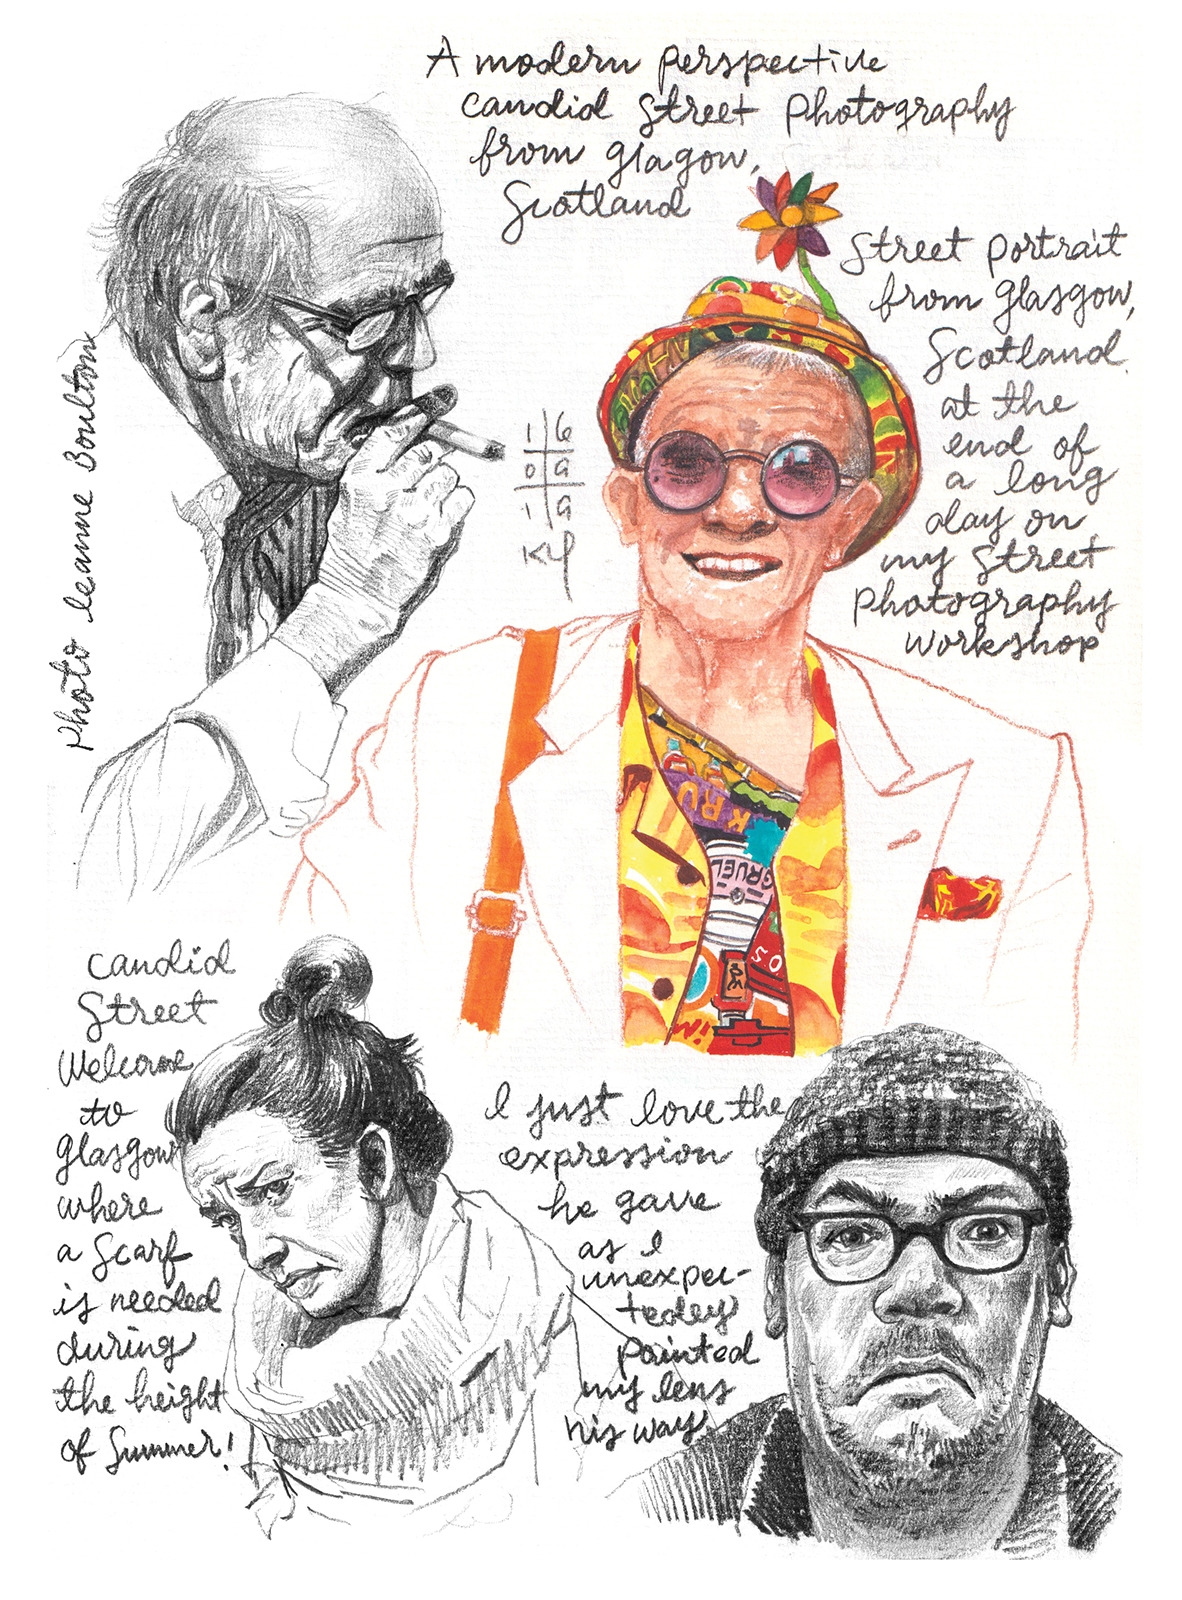 A modern perspective
candid Street Photography
from glagow,
Scotland
Street portrait
from glasgow,
Scotland.
at the
end of
a long
day on
my Street
Photography
workshop
Photo leanne Boulton
1 6
0 9
1 9
KY
KRU
GRUEL
SO
candid
Street
Welcome
to
glasgow
where
a Scarf
is needed
during
the height
of Summer!
I just love the
expression
he gave
as I
unexpec-
tedey
painted
my lens
his way